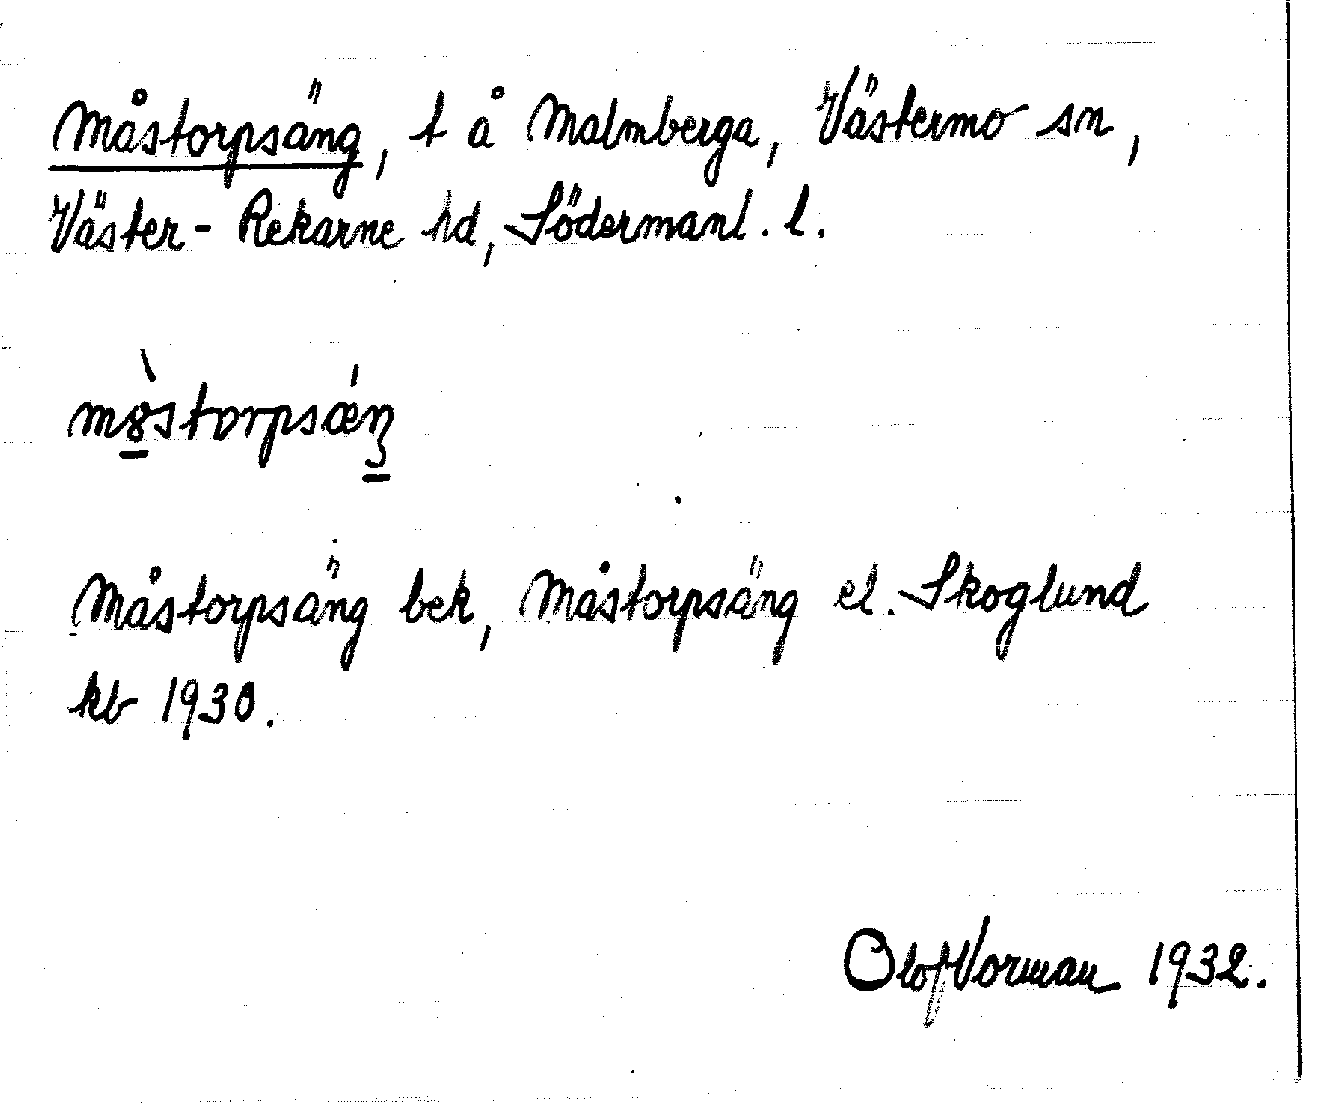 Måstorpsäng, t å Malmberga, Västermo sn,
Väster-Rekarne hd, Södermanl. l.
Måstorpsäng bek, Måstorpsäng el. Skoglund
kb 1930.
1932.